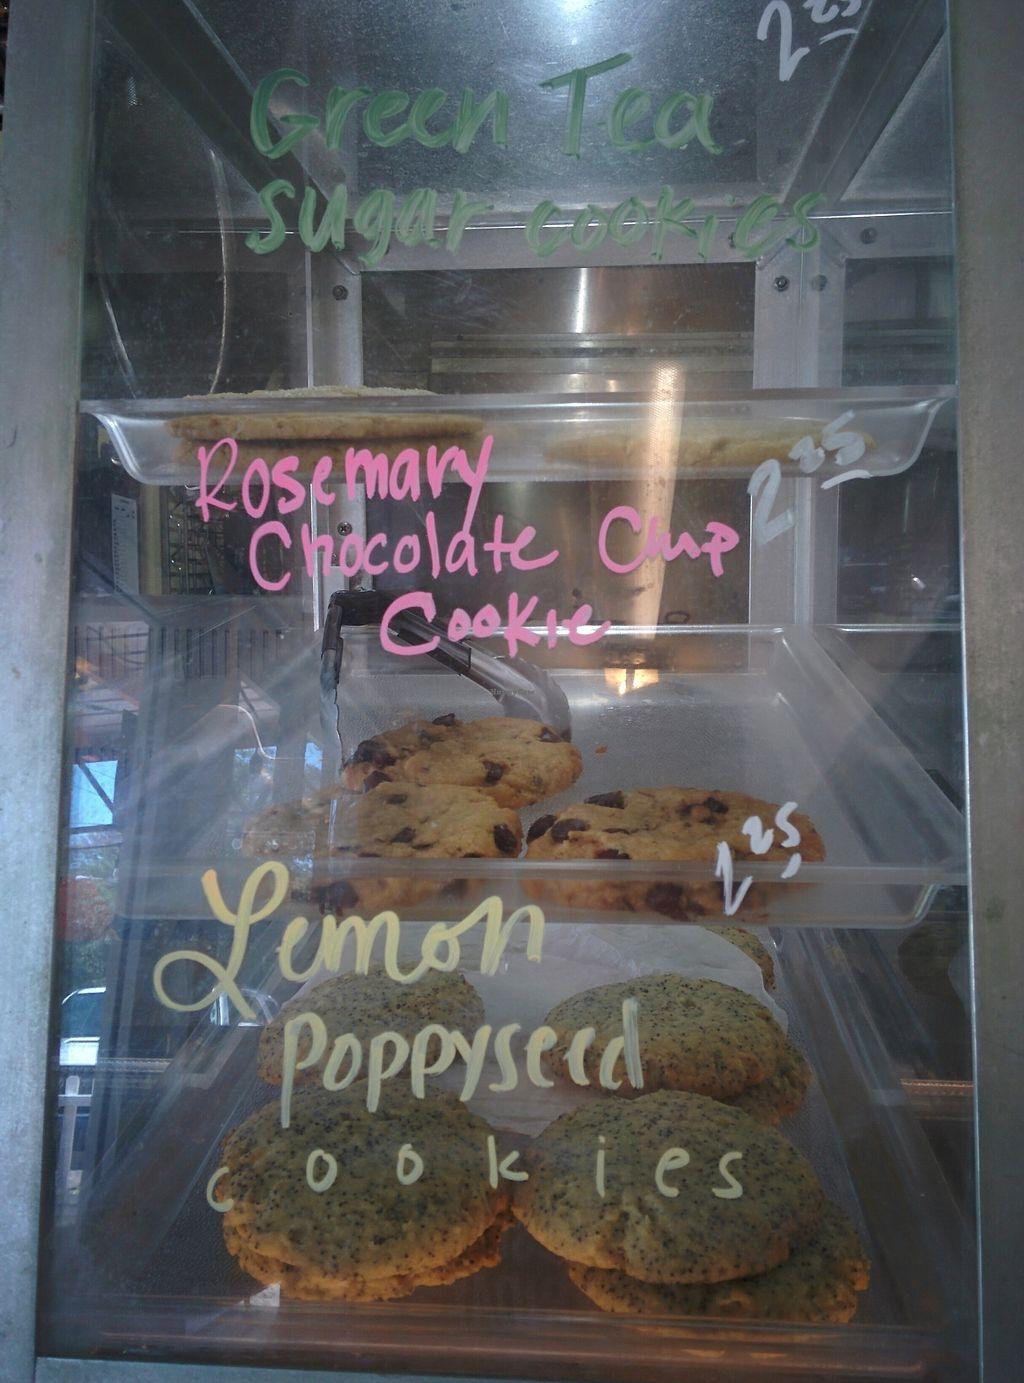 2 25
Green Tea
sugar cookies
Rosemary
2 25
Chocolate Chip
Cookie
1 25
Lemon
Poppyseed
cookies